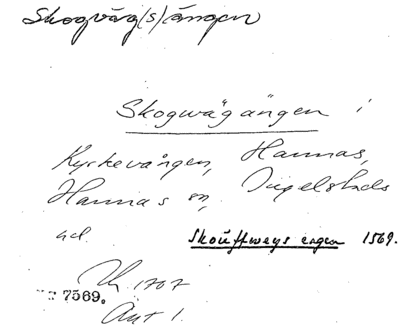 Skogväg(s)ängen
Skogwägängen i
Kyrkevången, Hannas,
Hannas sn, Ingelstads
hd. Skouffweys engen 1569.
1707
7569.
Akt 1.